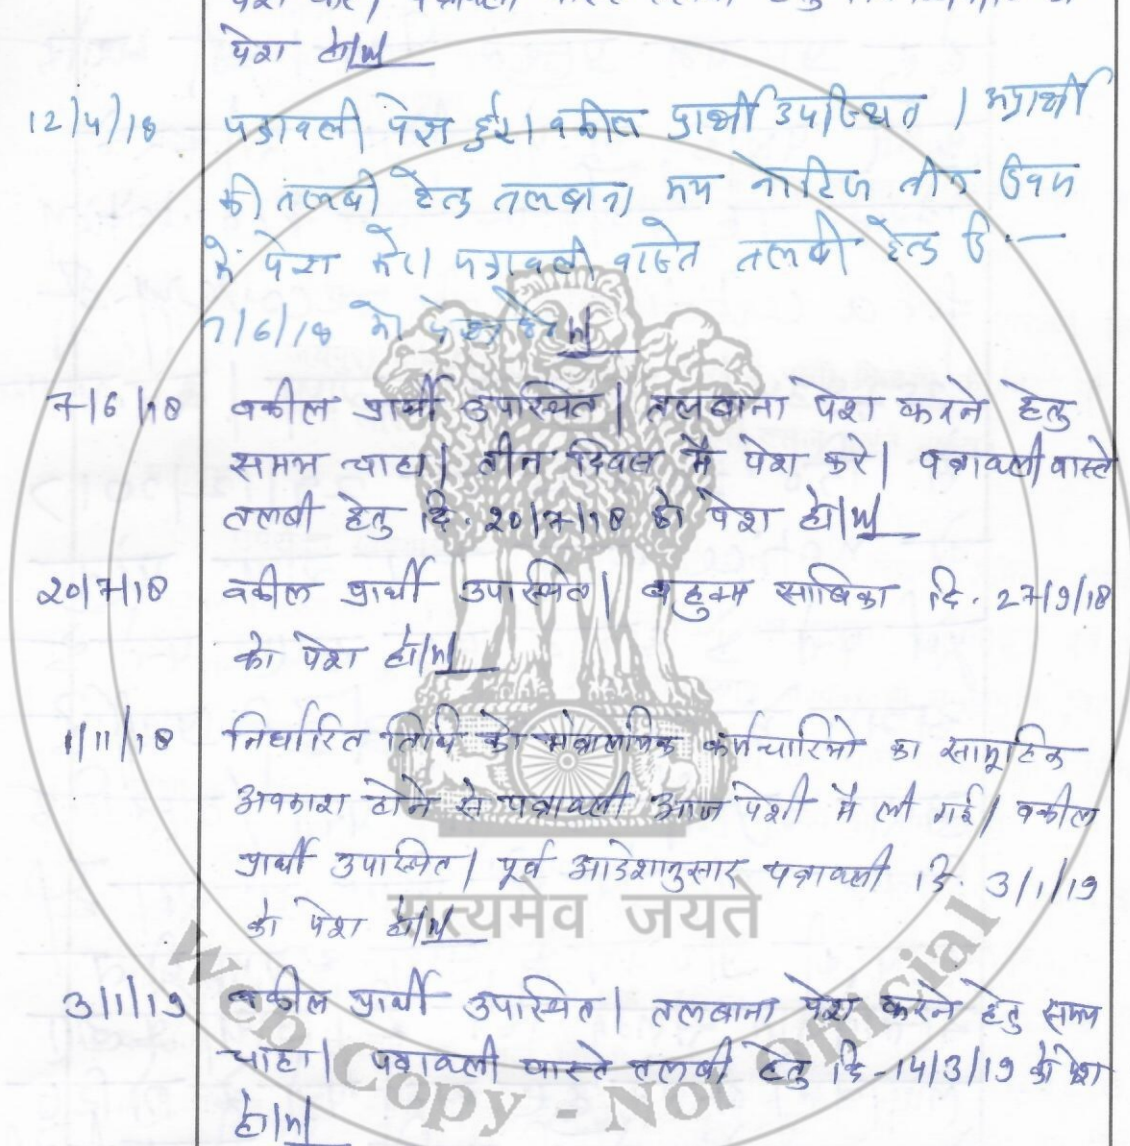 पेश हो।
12/4/18 पत्रावली पेश हुई। वकील प्रार्थी उपस्थित। अप्रार्थी
की तलबी हेतु तलबाना मय नोटिस तीन दिवस
में पेश करे। पत्रावली वास्ते तलबी हेतु दि.
7/6/18 को पेश हो।
7/6/18 वकील प्रार्थी उपस्थित। तलबाना पेश करने हेतु
समय चाहा। तीन दिवस में पेश करे। पत्रावली वास्ते
तलबी हेतु दि. 20/7/18 को पेश हो।
20/7/18 वकील प्रार्थी उपस्थित। बहुक्म साबिका दि. 27/9/18
को पेश हो।
1/11/18 निर्धारित तिथि को मंत्रालयिक कर्मचारियो का सामूहिक
अवकाश होने से पत्रावली आज पेशी में ली गई। वकील
प्रार्थी उपस्थित। पूर्व आदेशानुसार पत्रावली दि. 3/1/19
को पेश हो।
सत्यमेव जयते
3/1/19 वकील प्रार्थी उपस्थित। तलबाना पेश करने हेतु समय
चाहा। पत्रावली वास्ते तलबी हेतु दि-14/3/19 को पेश
हो।
Web Copy - Not Official